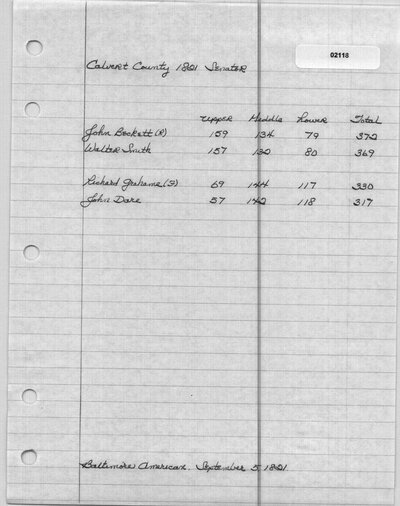 02118
Calvert County 1821 Senator
Upper Middle Lower Total
John Beckett (R) 159 134 79 372
Walter Smith 157 132 80 369
Richard Grahame (F) 69 144 117 330
John Dare 57 142 118 317
Baltimore American. September 5 1821